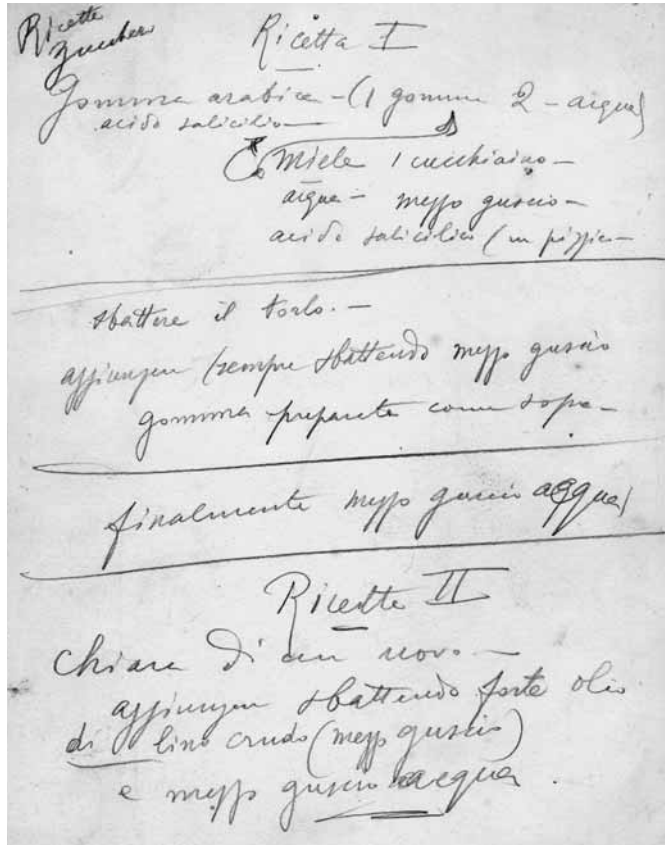 Ricette
Zucchero
Ricetta I
Gomma arabica - (1 gomma 2 - acqua)
acido salicilico
Miele 1 cucchiaino -
acqua - mezzo guscio -
acido salicilico (un pizzico -
sbattere il torlo. -
aggiungere (sempre sbattendo mezzo guscio
gomma preparata come sopra -
finalmente mezzo guscio acqua)
Ricette II
Chiara di un uovo -
aggiungere sbattendo forte olio
di lino crudo (mezzo guscio)
e mezzo guscio acqua.